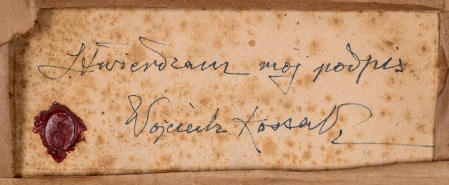 Stwierdzam mój podpis
Wojciech Kossak